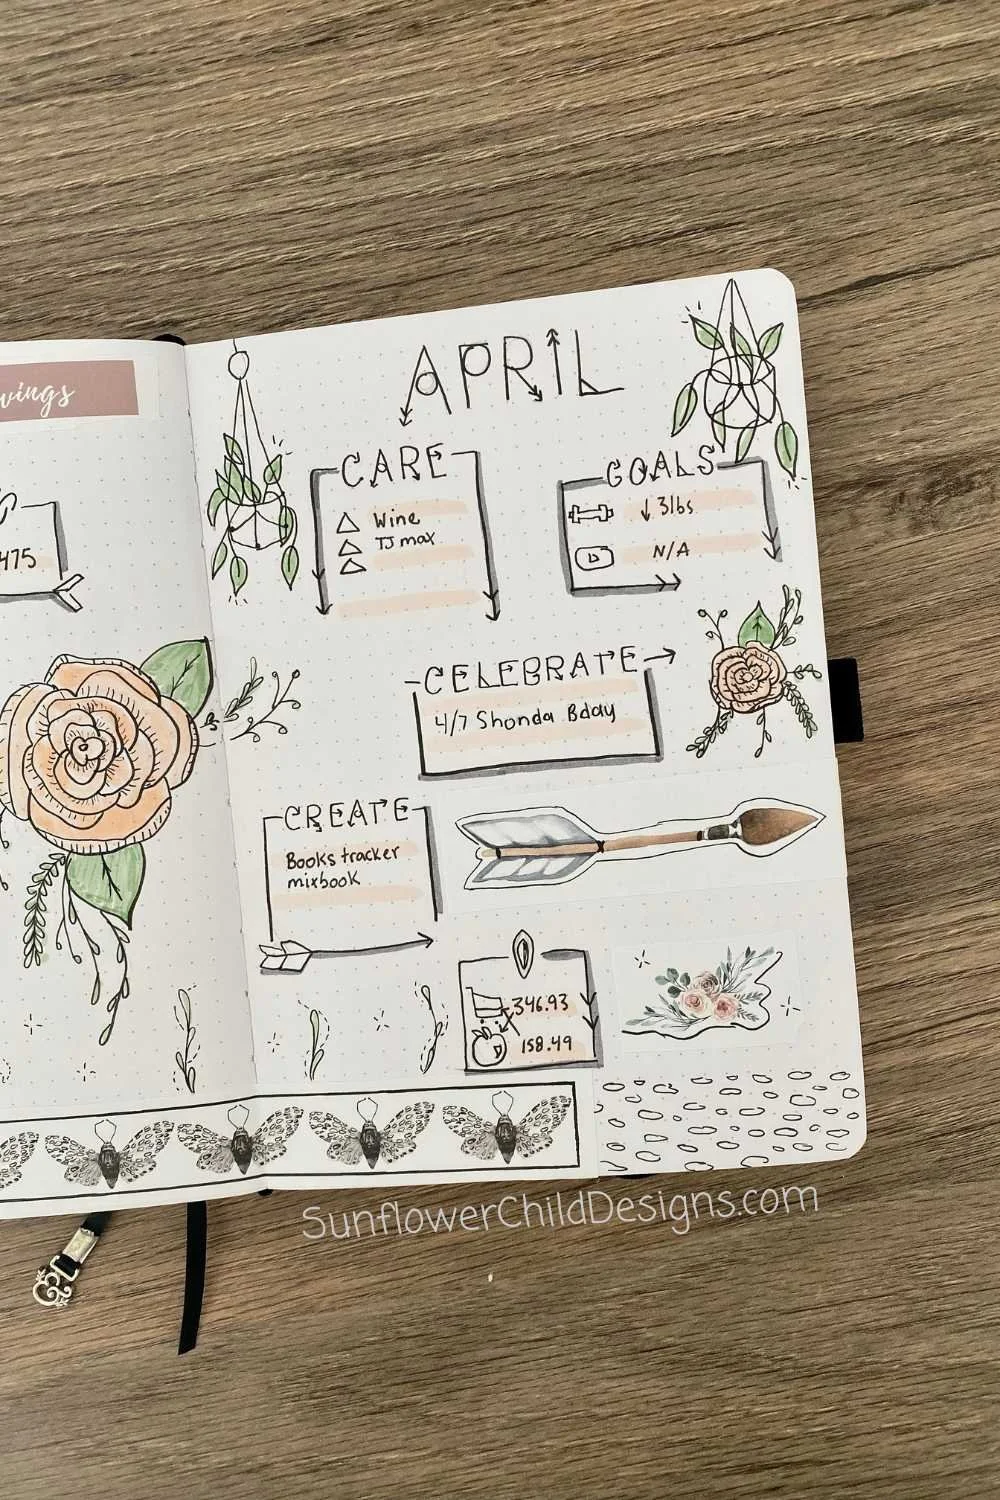 wings
475
APRIL
CARE
Wine
TJ max
GOALS
↓ 3lbs
N/A
CELEBRATE
4/7 Shonda Bday
CREATE
Books tracker
mixbook
346.93
158.49
SunflowerChildDesigns.com